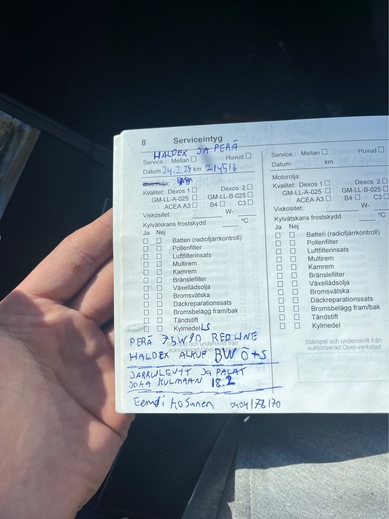 8 Serviceintyg
HALDEX JA PERÄ
Service: Mellan Huvud
Datum 24.2.25 km 214516
Motorolja:
Kvalitet: Dexos 1 Dexos 2
GM-LL-A-025 GM-LL-B-025
ACEA A3 B4 C3
Viskositet: W-
Kylvätskans frostskydd °C
Ja Nej
Batteri (radiofjärrkontroll)
Pollenfilter
Luftfilterinsats
Multirem
Kamrem
Bränslefilter
Växellådsolja
Bromsvätska
Däckreparationssats
Bromsbelägg fram/bak
Tändstift
Kylmedel LS
PERÄ 75W90 REDLINE
HALDEX ALKUP BW ö+s
JARRULEVYT JA PALAT
JOKA KULMAAN 18.2
Service: Mellan Huvud
Datum km
Motorolja:
Kvalitet: Dexos 1 Dexos 2
GM-LL-A-025 GM-LL-B-025
ACEA A3 B4 C3
Viskositet: W-
Kylvätskans frostskydd °C
Ja Nej
Batteri (radiofjärrkontroll)
Pollenfilter
Luftfilterinsats
Multirem
Kamrem
Bränslefilter
Växellådsolja
Bromsvätska
Däckreparationssats
Bromsbelägg fram/bak
Tändstift
Kylmedel
Stämpel och underskrift från
auktoriserad Opel-verkstad.